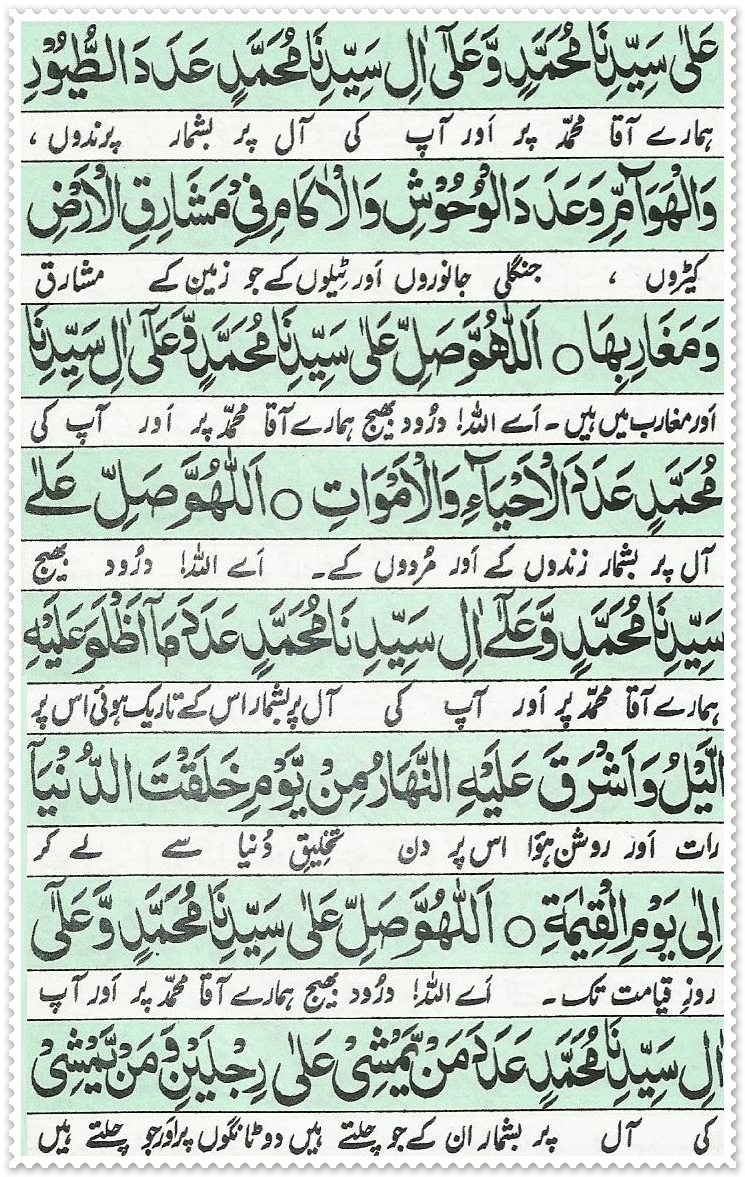 عَلٰى سَيِّدِنَا مُحَمَّدٍ وَّعَلٰٓى اٰلِ سَيِّدِنَا مُحَمَّدٍ عَدَدَ الطُّيُوْرِ
ہمارے آقا محمّد پر اَور آپ کی آل پر بشمار پرندوں ،
وَالْهَوَآمِّ وَعَدَدَ الْوُحُوْشِ وَالْاٰكَامِ فِيْ مَشَارِقِ الْاَرْضِ
کیڑوں ، جنگلی جانوروں اَور ٹیلوں کے جو زمین کے مشارق
وَمَغَارِبِهَا ○ اَللّٰهُمَّ صَلِّ عَلٰى سَيِّدِنَا مُحَمَّدٍ وَّعَلٰٓى اٰلِ سَيِّدِنَا
اَور مغارب میں ہیں ۔ اَے اللہ! درُود بھیج ہمارے آقا محمّد پر اَور آپ کی
مُحَمَّدٍ عَدَدَ الْاَحْيَآءِ وَالْاَمْوَاتِ ○ اَللّٰهُمَّ صَلِّ عَلٰے
آل پر بشمار زندوں کے اَور مُردوں کے۔ اَے اللہ! درُود بھیج
سَيِّدِنَا مُحَمَّدٍ وَّعَلٰٓے اٰلِ سَيِّدِنَا مُحَمَّدٍ عَدَدَ مَآ اَظْلَمَ عَلَيْهِ
ہمارے آقا محمّد پر اَور آپ کی آل پر بشمار اس کے تاریک ہوئی اس پر
الَّيْلُ وَاَشْرَقَ عَلَيْهِ النَّهَارُ مِنْ يَّوْمِ خَلَقْتَ الدُّنْيَآ
رات اَور روشن ہؤا اس پر دن تخلیقِ دُنیا سے لے کر
اِلٰى يَوْمِ الْقِيٰمَةِ ○ اَللّٰهُمَّ صَلِّ عَلٰى سَيِّدِنَا مُحَمَّدٍ وَّعَلٰٓى
روزِ قیامت تک ۔ اَے اللہ! درُود بھیج ہمارے آقا محمّد پر اَور آپ
اٰلِ سَيِّدِنَا مُحَمَّدٍ عَدَدَ مَنْ يَّمْشِيْ عَلٰى رِجْلَيْنِ وَمَنْ يَّمْشِيْ
کی آل پر بشمار ان کے جو چلتے ہیں دو ٹانگوں پر اَور جو چلتے ہیں